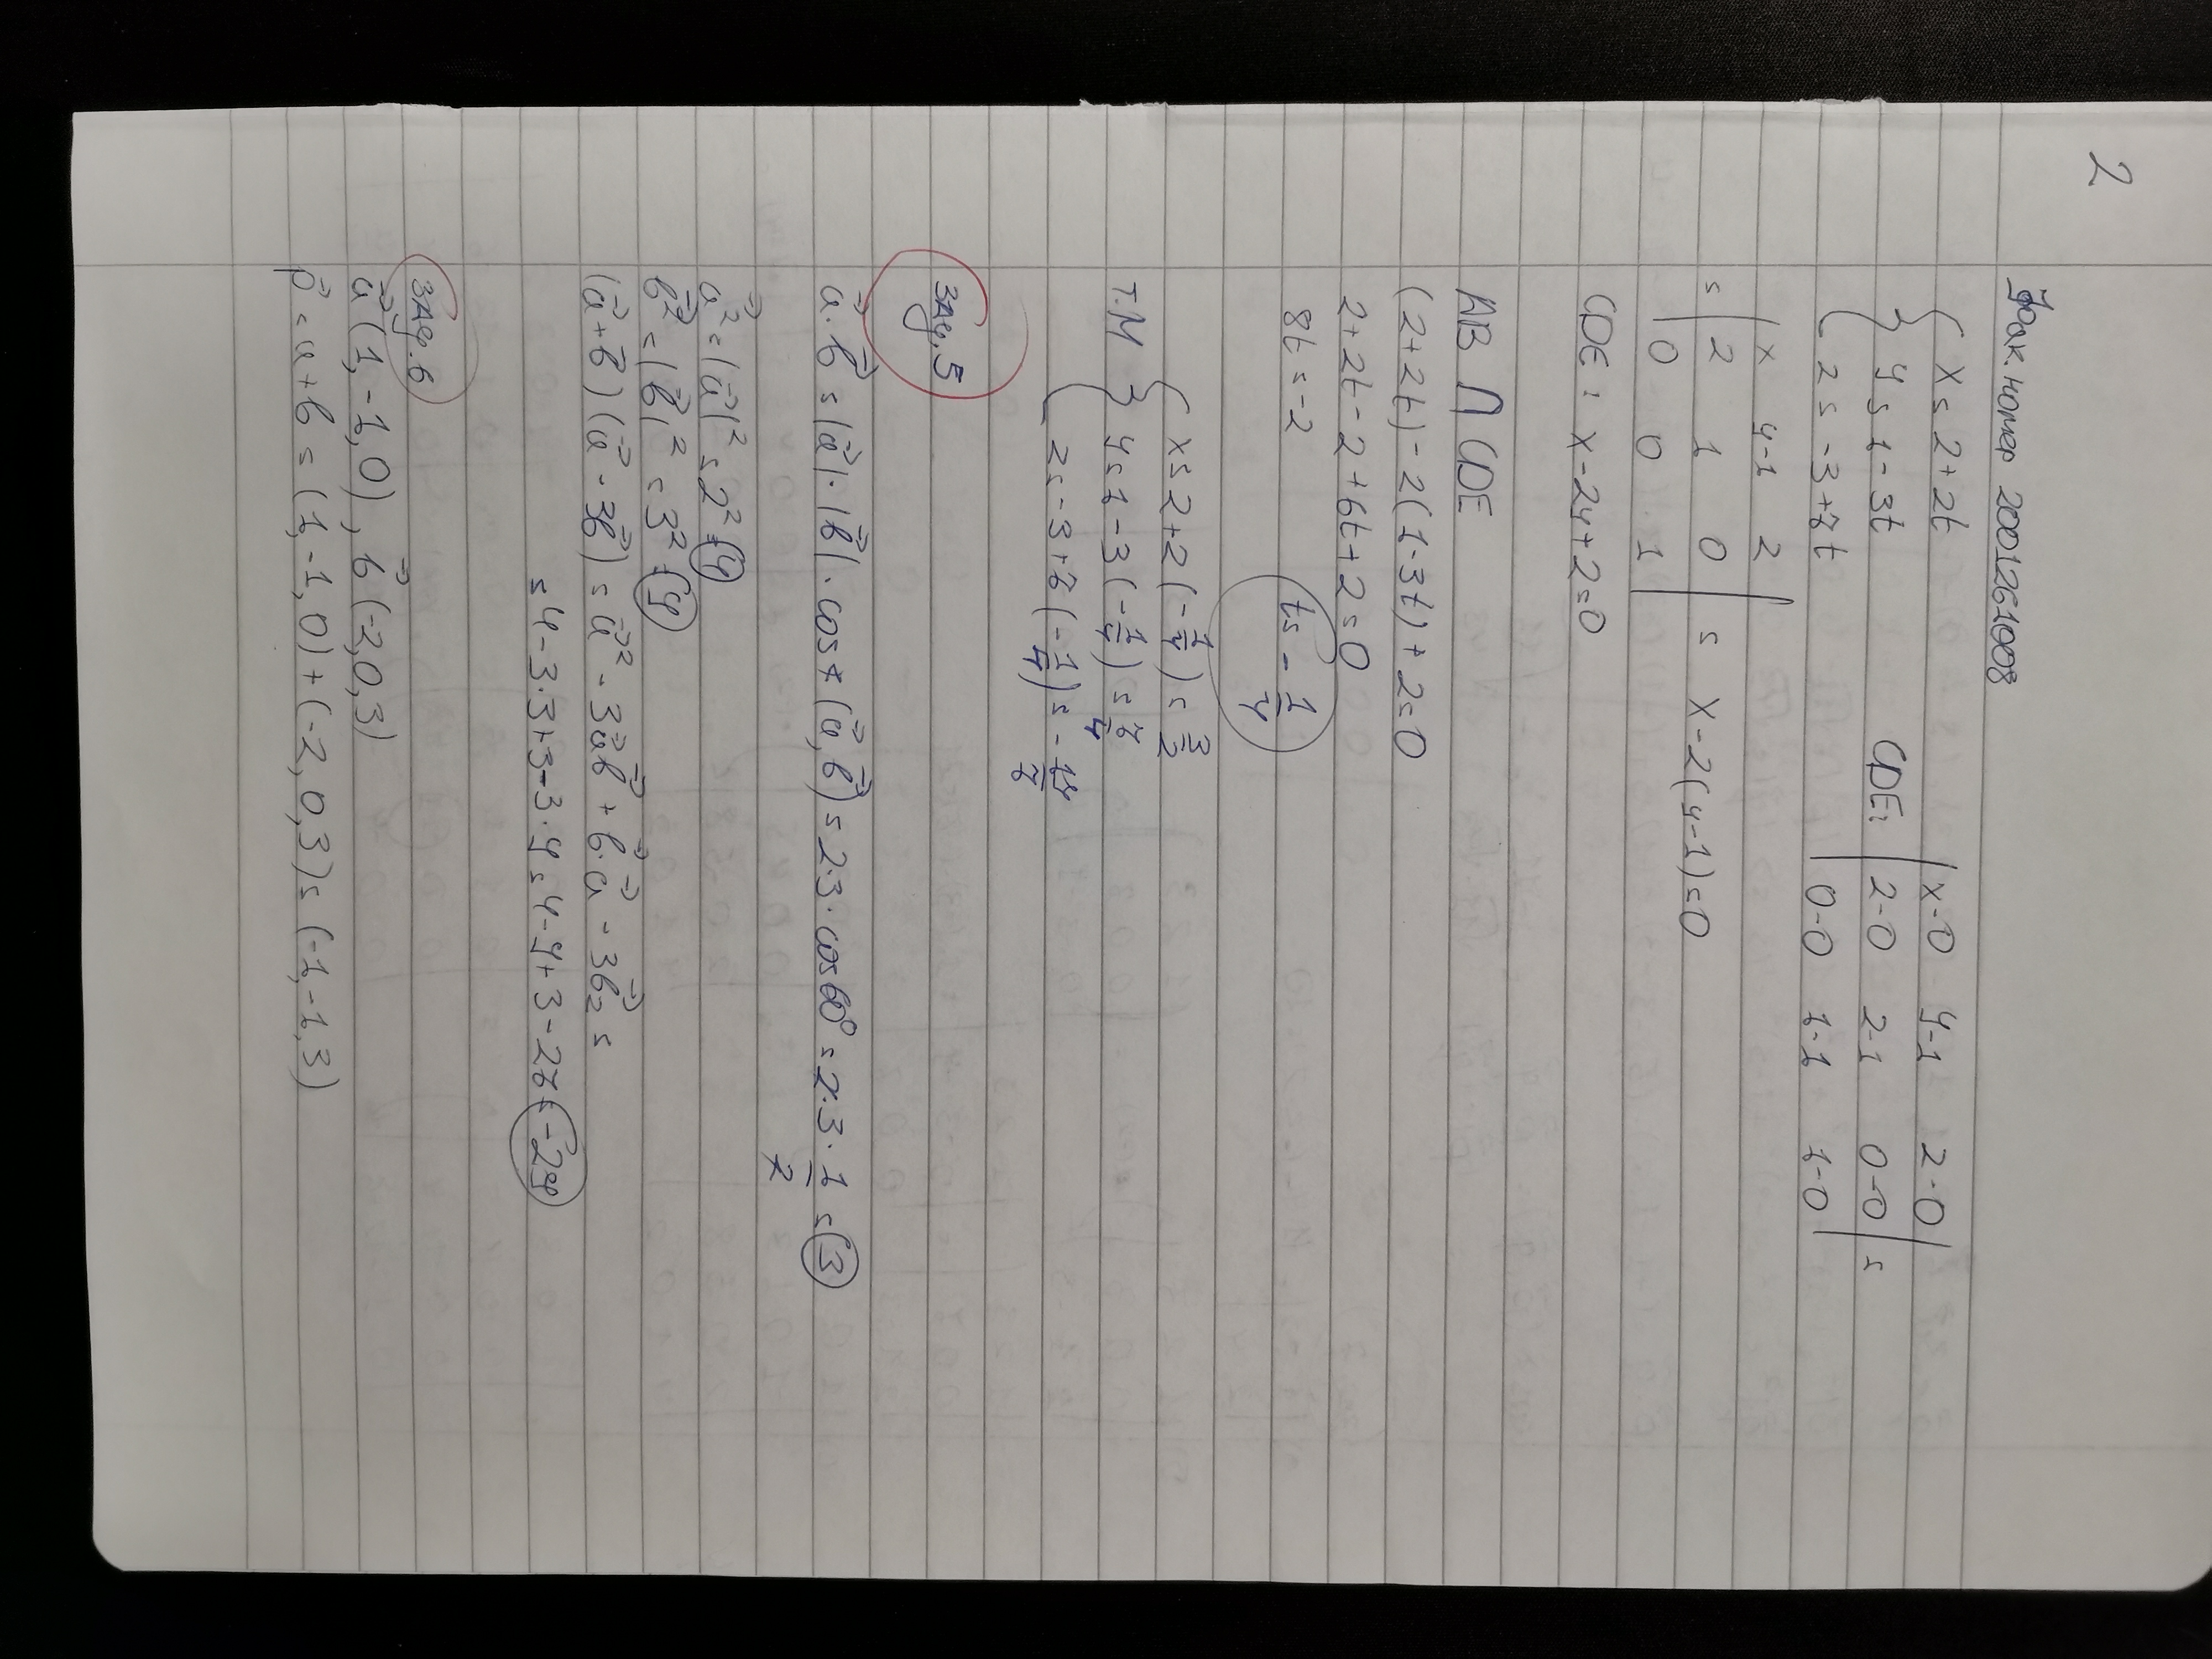 2
Фак. номер 2001261008
x = 2+2t
y = 1-3t
z = -3+7t
CDE: | x-0 y-1 z-0 |
| 2-0 2-1 0-0 | =
| 0-0 1-1 1-0 |
| x y-1 z |
= | 2 1 0 | = x-2(y-1)=0
| 0 0 1 |
CDE: x-2y+2=0
AB ∩ CDE
(2+2t)-2(1-3t)+2=0
2+2t-2+6t+2=0
8t=-2 t=-1/4
x=2+2(-1/4)=3/2
т.М y=1-3(-1/4)=7/4
z=-3+7(-1/4)=-19/7
Зад.5
a⃗.b⃗ = |a⃗|.|b⃗|.cos∢(a⃗,b⃗)=2.3.cos60°=2.3.1/2=3
a⃗²=|a⃗|²=2²=4
b⃗²=|b⃗|²=3²=9
(a⃗+b⃗)(a⃗-3b⃗)=a⃗²-3a⃗b⃗+b⃗.a⃗-3b⃗2=
=4-3.3+3-3.9=4-9+3-27=-29
Зад.6
a⃗(1,-1,0), b⃗(-2,0,3)
p⃗=a+b=(1,-1,0)+(-2,0,3)=(-1,-1,3)